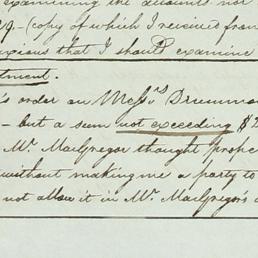 examining the accounts nor
(copy of which I received from
anxious that I should examine
tment.
's order on Messrs Drummon
- but a sum not exceeding $2
Mr. MacGregor thought prope
without making me a party to
not allow it in Mr. MacGregor's a